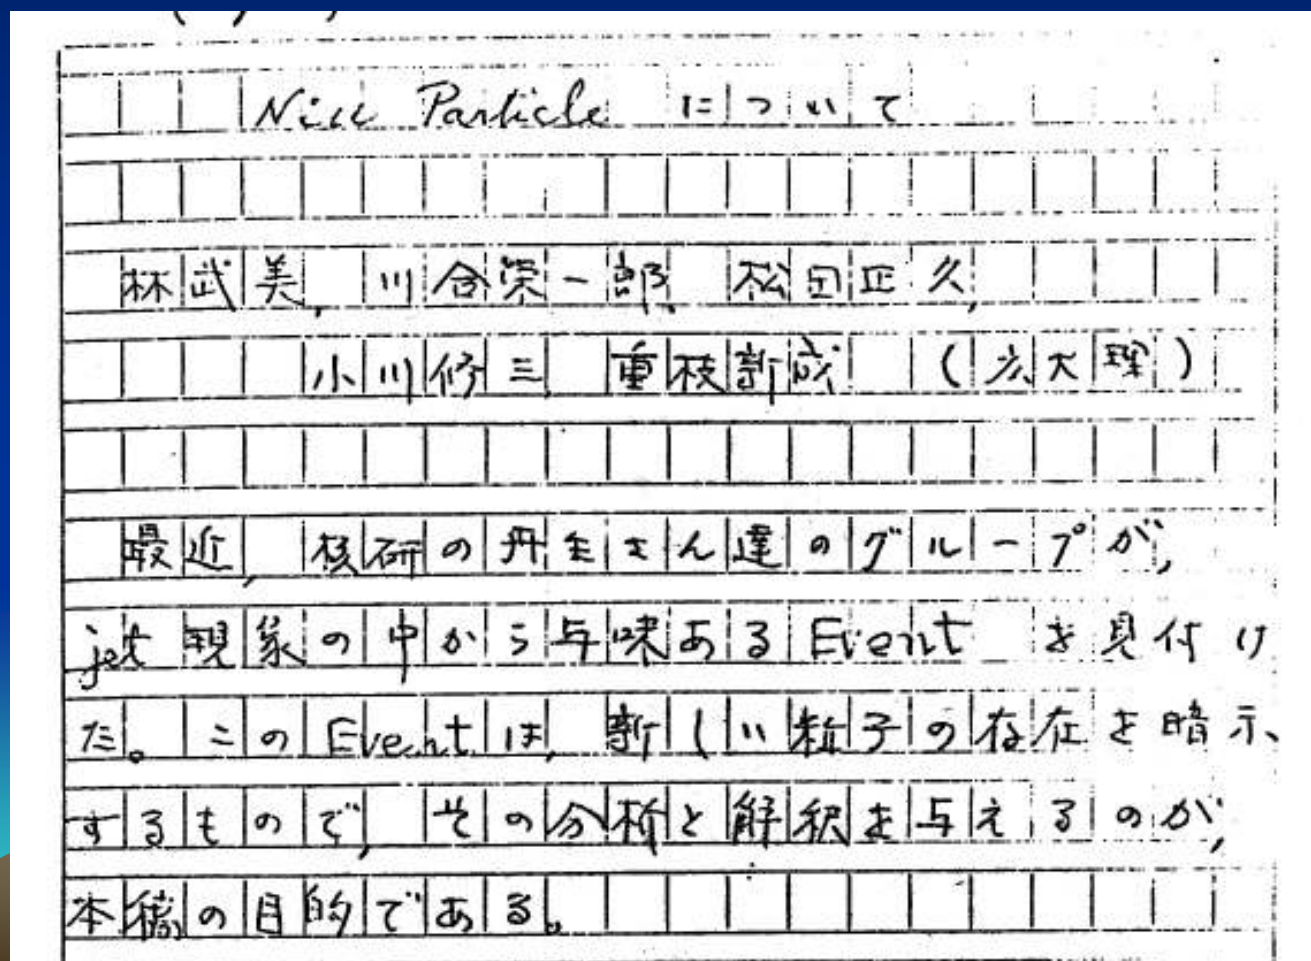 Niu Particle について
林武美, 川合栄一郎, 松田正久,
小川修三, 重枝新成 (広大理)
最近, 核研の丹生さん達のグループが,
jet 現象の中から与味ある Event を見付け
た。このEventは, 新しい粒子の存在を暗示
するもので, その分析と解釈を与えるのが,
本稿の目的である。